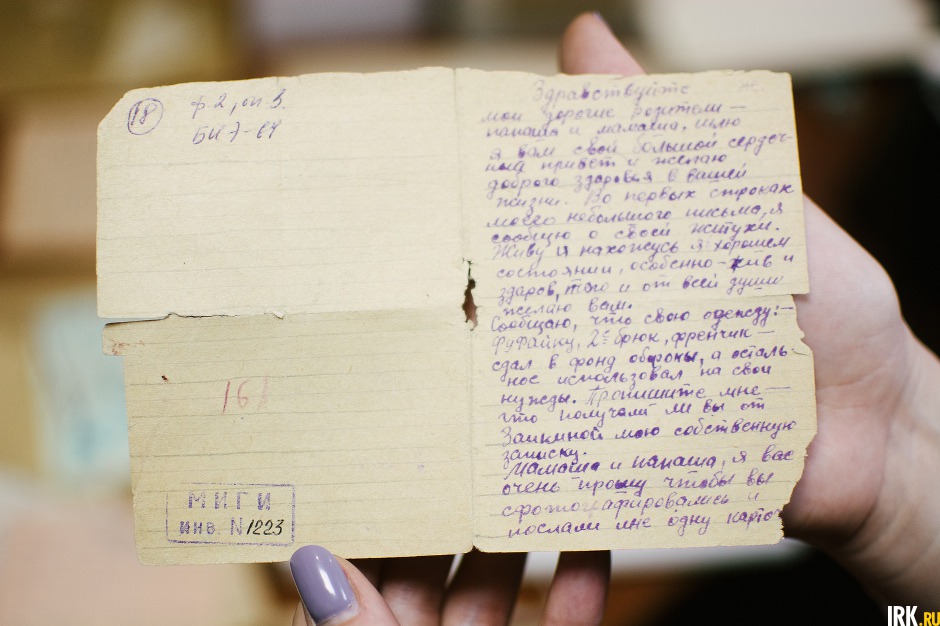 18
ф 2, оп 3.
БИЭ-64
161
МИГИ
инв. N1223
Здравствуйте
мои дорогие родители —
папаша и мамаша, шлю
я вам свой большой сердеч-
ный привет и желаю
доброго здоровья в вашей
жизни. Во первых строках
моего небольшого письма, я
сообщу о своей жітухи.
Живу и нахожусь я хорошем
состоянии, особенно-жив и
здаров, того и от всей души
желаю вам.
Сообщаю, что свою одежду:-
Фуфайку, 2е брюк, френчик-
сдал в фонд обороны, а осталь-
ное использовал на свои
нужды. Пропишите мне-
что получали ли вы от
Заикиной мою собственную
записку.
Мамаша и папаша, я вас
очень прошу чтобы вы
сфотографировались и
послали мне одну карто
IRK.RU